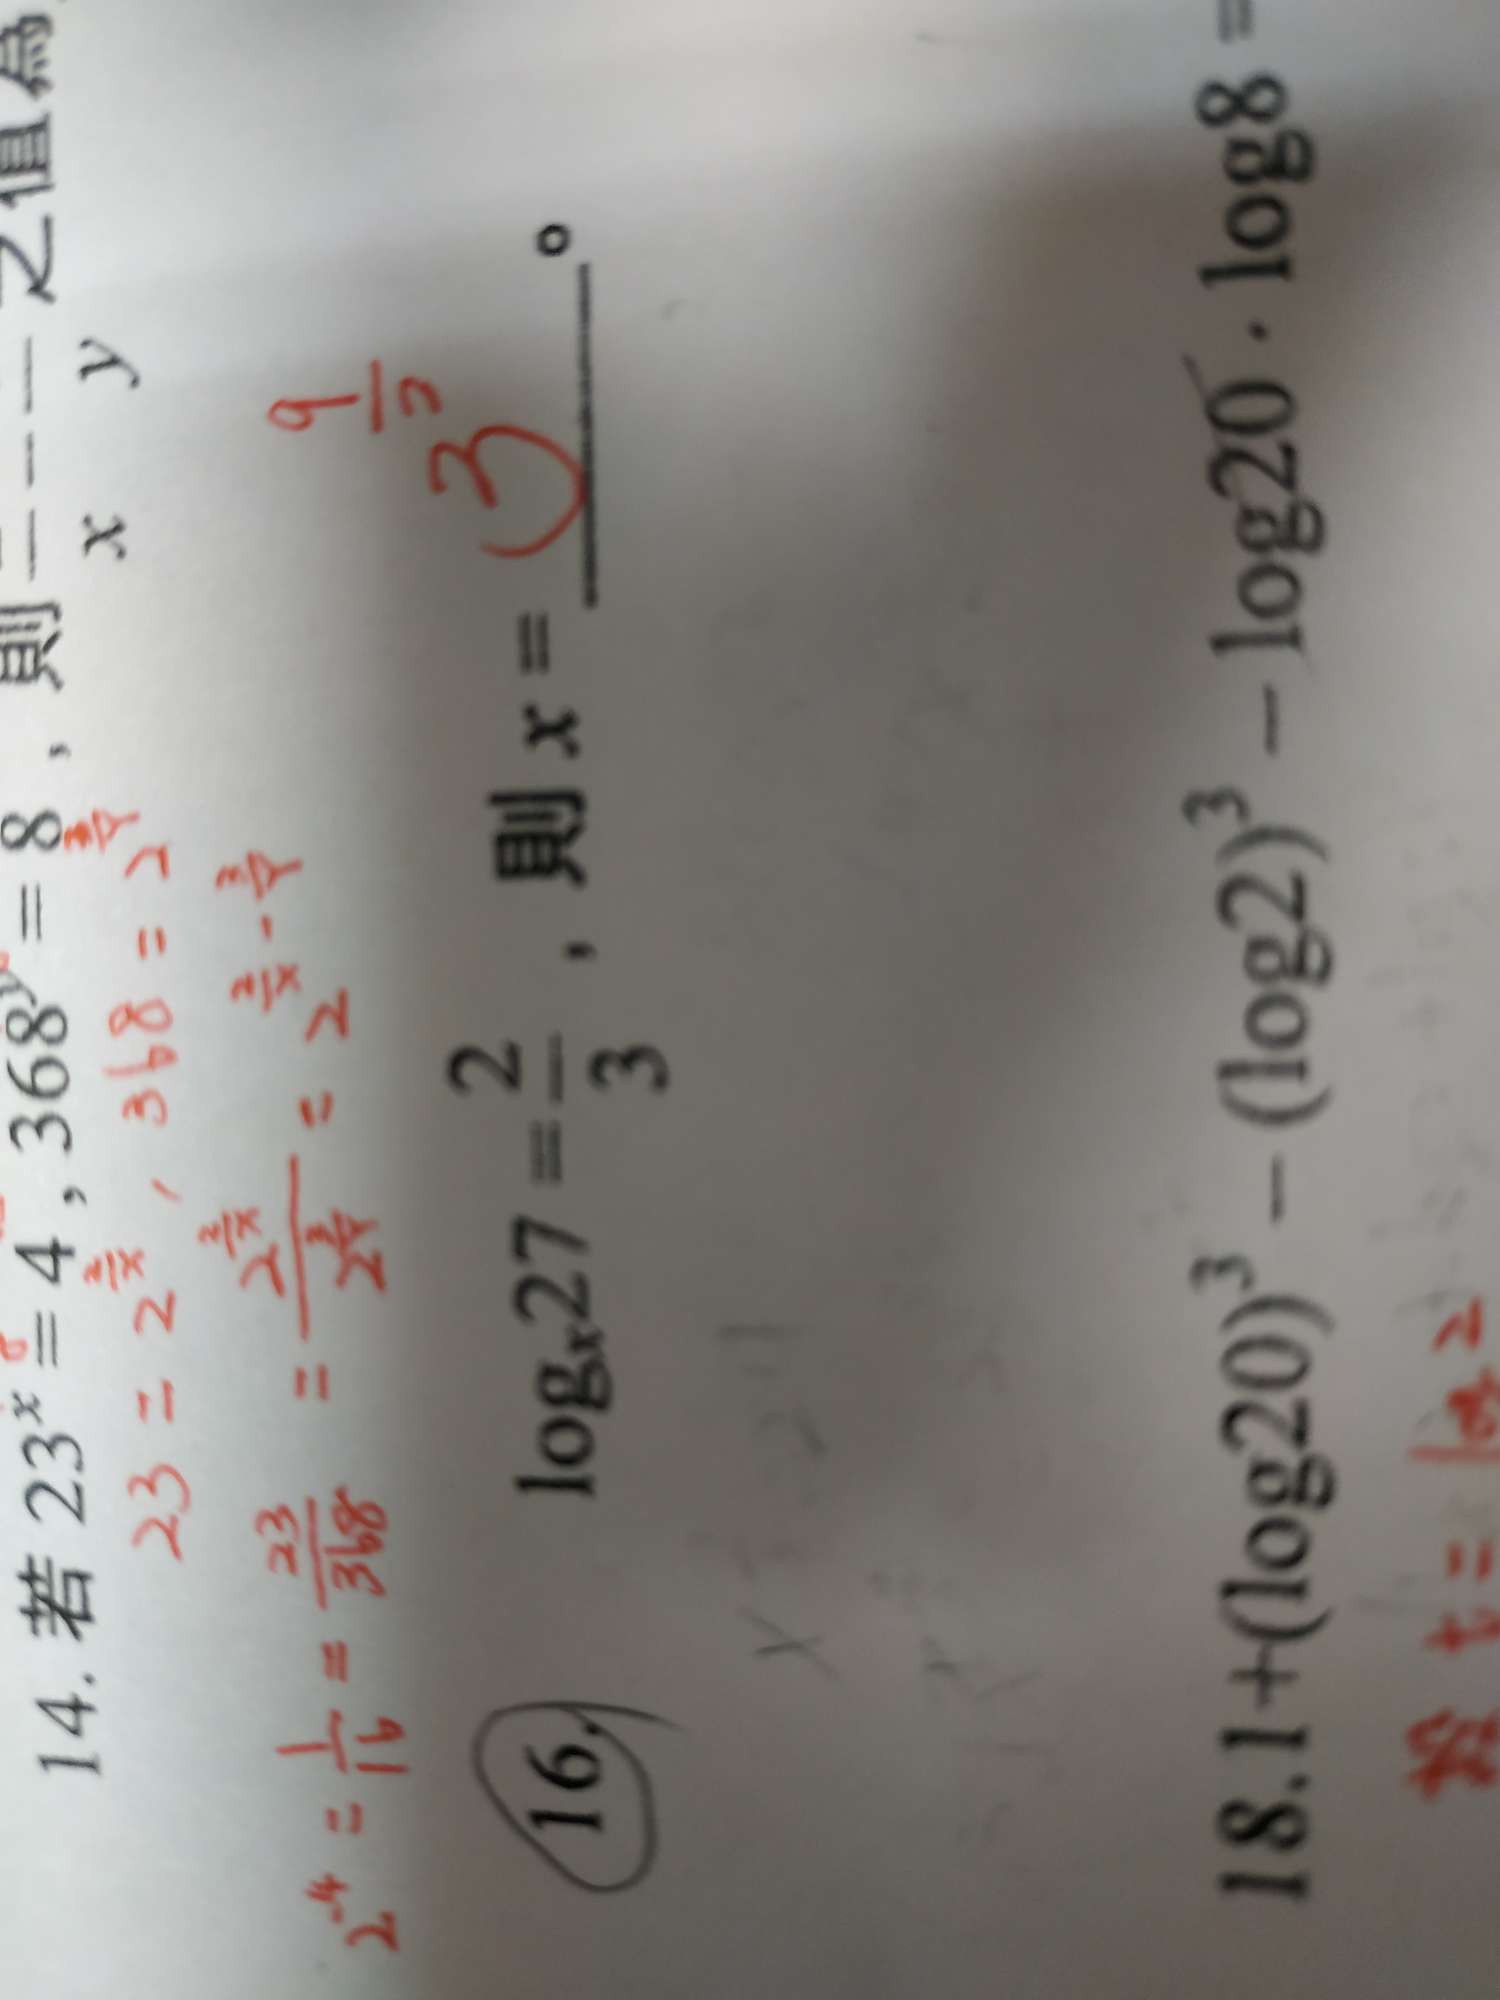 14. 若 23ˣ = 4 , 368ʸ = 8 , 則 — − — 之值為
x y
23 = 2^(2/x) , 368 = 2^(3/y)
2⁻⁴ = 1/16 = 23/368 = 2^(2/x) / 2^(3/y) = 2^(2/x − 3/y)
16. logₓ27 = 2/3 , 則 x = 3^(9/2) 。
18. 1+(log20)³ − (log2)³ − log20 · log8 =
t = log 2